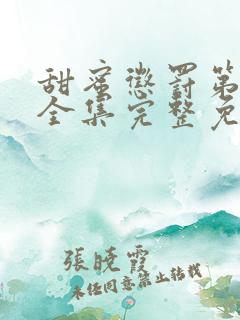 甜蜜懲罰第
全集完整免
張曉霞
未任同意禁止轉載